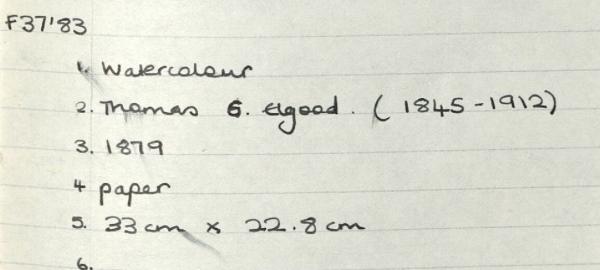 F37'83
1. Watercolour
2. Thomas G. Elgood. (1845-1912)
3. 1879
4 paper
5. 33cm x 22.8cm
6.